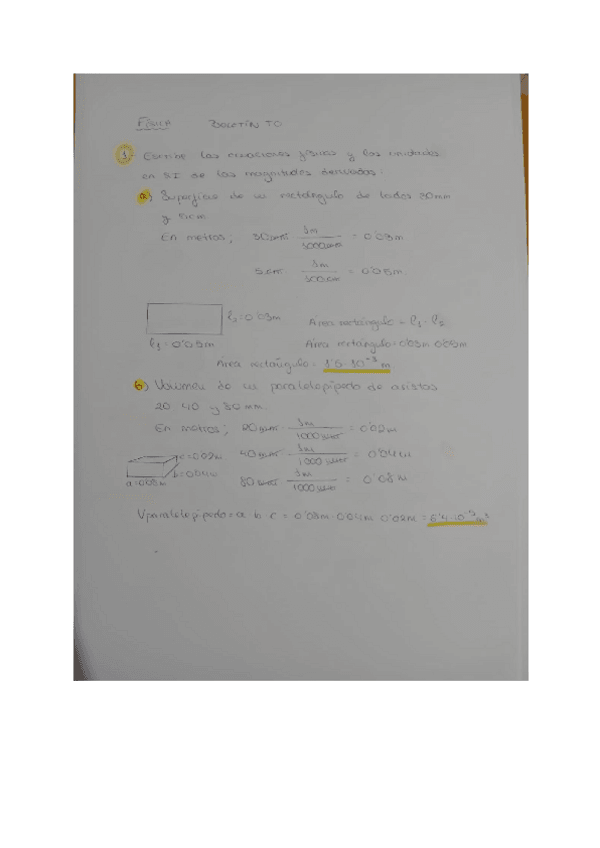 FÍSICA BOLETÍN T0
1. Escribe las ecuaciones físicas y las unidades
en SI de las magnitudes derivadas:
a) Superficie de un rectángulo de lados 30mm
y 5cm
En metros; 30mm · 1m / 1000mm = 0'03m
5cm · 1m / 100cm = 0'05m
l₂ = 0'03m Área rectángulo = l₁ · l₂
l₁ = 0'05m Área rectángulo = 0'03m · 0'05m
Área rectángulo = 1'5 · 10⁻³ m
b) Volumen de un paralelepípedo de aristas
20, 40 y 80 mm.
En metros; 20mm · 1m / 1000mm = 0'02m
c = 0'02m 40mm · 1m / 1000mm = 0'04m
b = 0'04m
a = 0'08m 80mm · 1m / 1000mm = 0'08m
Vparalelepípedo = a · b · c = 0'08m · 0'04m · 0'02m =